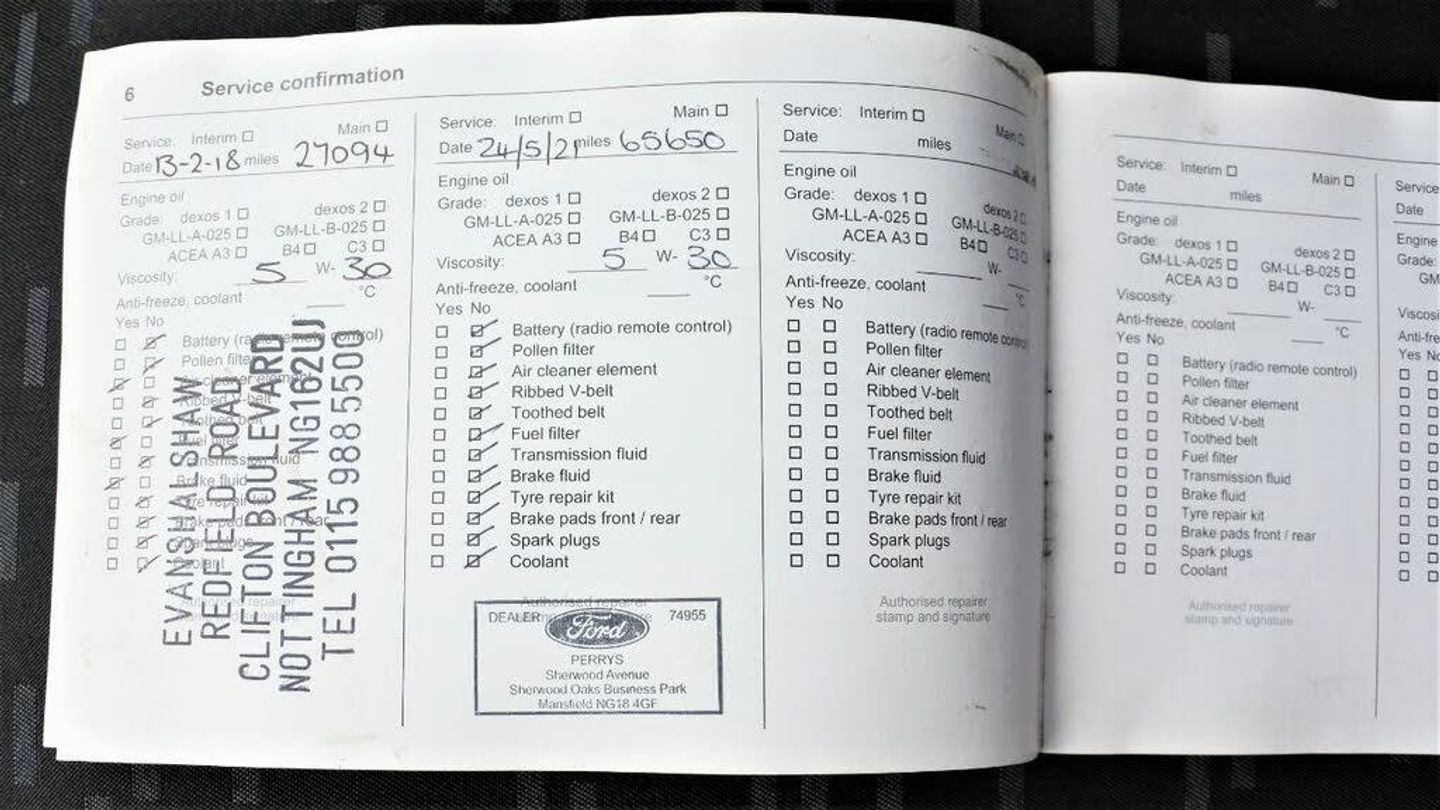 6 Service confirmation
Service: Interim ☐ Main ☐
Date 13-2-18 miles 27094
Engine oil
Grade: dexos 1 ☐ dexos 2 ☐
GM-LL-A-025 ☐ GM-LL-B-025 ☐
ACEA A3 ☐ B4 ☐ C3 ☐
Viscosity: 5 W- 30
Anti-freeze, coolant ____ °C
Yes No
Battery (radio remote control)
Pollen filter
Air cleaner element
Ribbed V-belt
Toothed belt
Fuel filter
Transmission fluid
Brake fluid
Tyre repair kit
Brake pads front / rear
Spark plugs
Coolant
Authorised repairer
EVANSHALSHAW
REDFIELD ROAD
CLIFTON BOULEVARD
NOTTINGHAM NG162UJ
TEL 0115 9885500
Service: Interim ☐ Main ☐
Date 24/5/21 miles 65650
Engine oil
Grade: dexos 1 ☐ dexos 2 ☐
GM-LL-A-025 ☐ GM-LL-B-025 ☐
ACEA A3 ☐ B4 ☐ C3 ☐
Viscosity: 5 W- 30
Anti-freeze, coolant ____ °C
Yes No
Battery (radio remote control)
Pollen filter
Air cleaner element
Ribbed V-belt
Toothed belt
Fuel filter
Transmission fluid
Brake fluid
Tyre repair kit
Brake pads front / rear
Spark plugs
Coolant
Authorised repairer
DEALER Ford 74955
PERRYS
Sherwood Avenue
Sherwood Oaks Business Park
Mansfield NG18 4GF
Service: Interim ☐ Main ☐
Date miles
Engine oil
Grade: dexos 1 ☐ dexos 2 ☐
GM-LL-A-025 ☐ GM-LL-B-025 ☐
ACEA A3 ☐ B4 ☐ C3 ☐
Viscosity: ____ W- ____
Anti-freeze, coolant ____ °C
Yes No
Battery (radio remote control)
Pollen filter
Air cleaner element
Ribbed V-belt
Toothed belt
Fuel filter
Transmission fluid
Brake fluid
Tyre repair kit
Brake pads front / rear
Spark plugs
Coolant
Authorised repairer
stamp and signature
Service: Interim ☐ Main ☐
Date miles
Engine oil
Grade: dexos 1 ☐ dexos 2 ☐
GM-LL-A-025 ☐ GM-LL-B-025 ☐
ACEA A3 ☐ B4 ☐ C3 ☐
Viscosity: ____ W- ____
Anti-freeze, coolant ____ °C
Yes No
Battery (radio remote control)
Pollen filter
Air cleaner element
Ribbed V-belt
Toothed belt
Fuel filter
Transmission fluid
Brake fluid
Tyre repair kit
Brake pads front / rear
Spark plugs
Coolant
Authorised repairer
stamp and signature
Service
Date
Engine
Grade:
GM
Viscosi
Anti-fre
Yes No